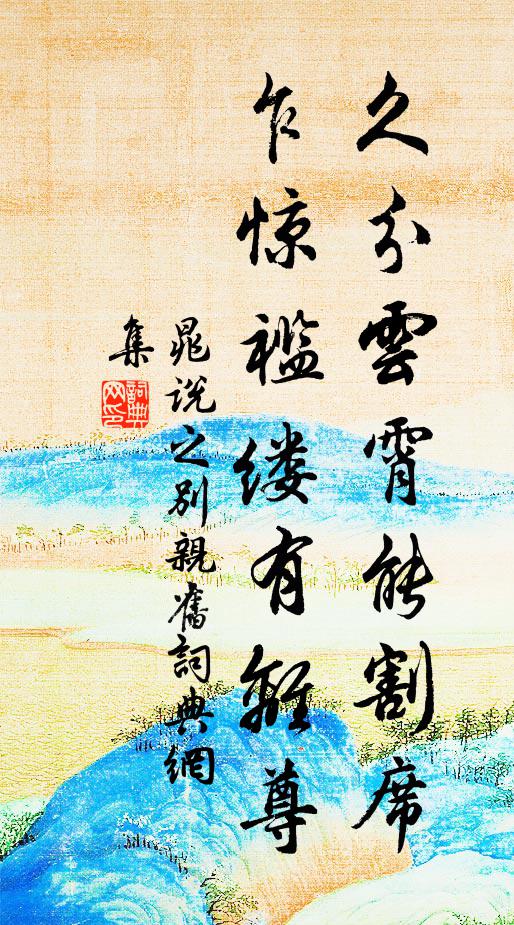 久分雲霄能割席
乍惊褴缕有離尊
晁说之别親舊詞典網
集
詞典
网印